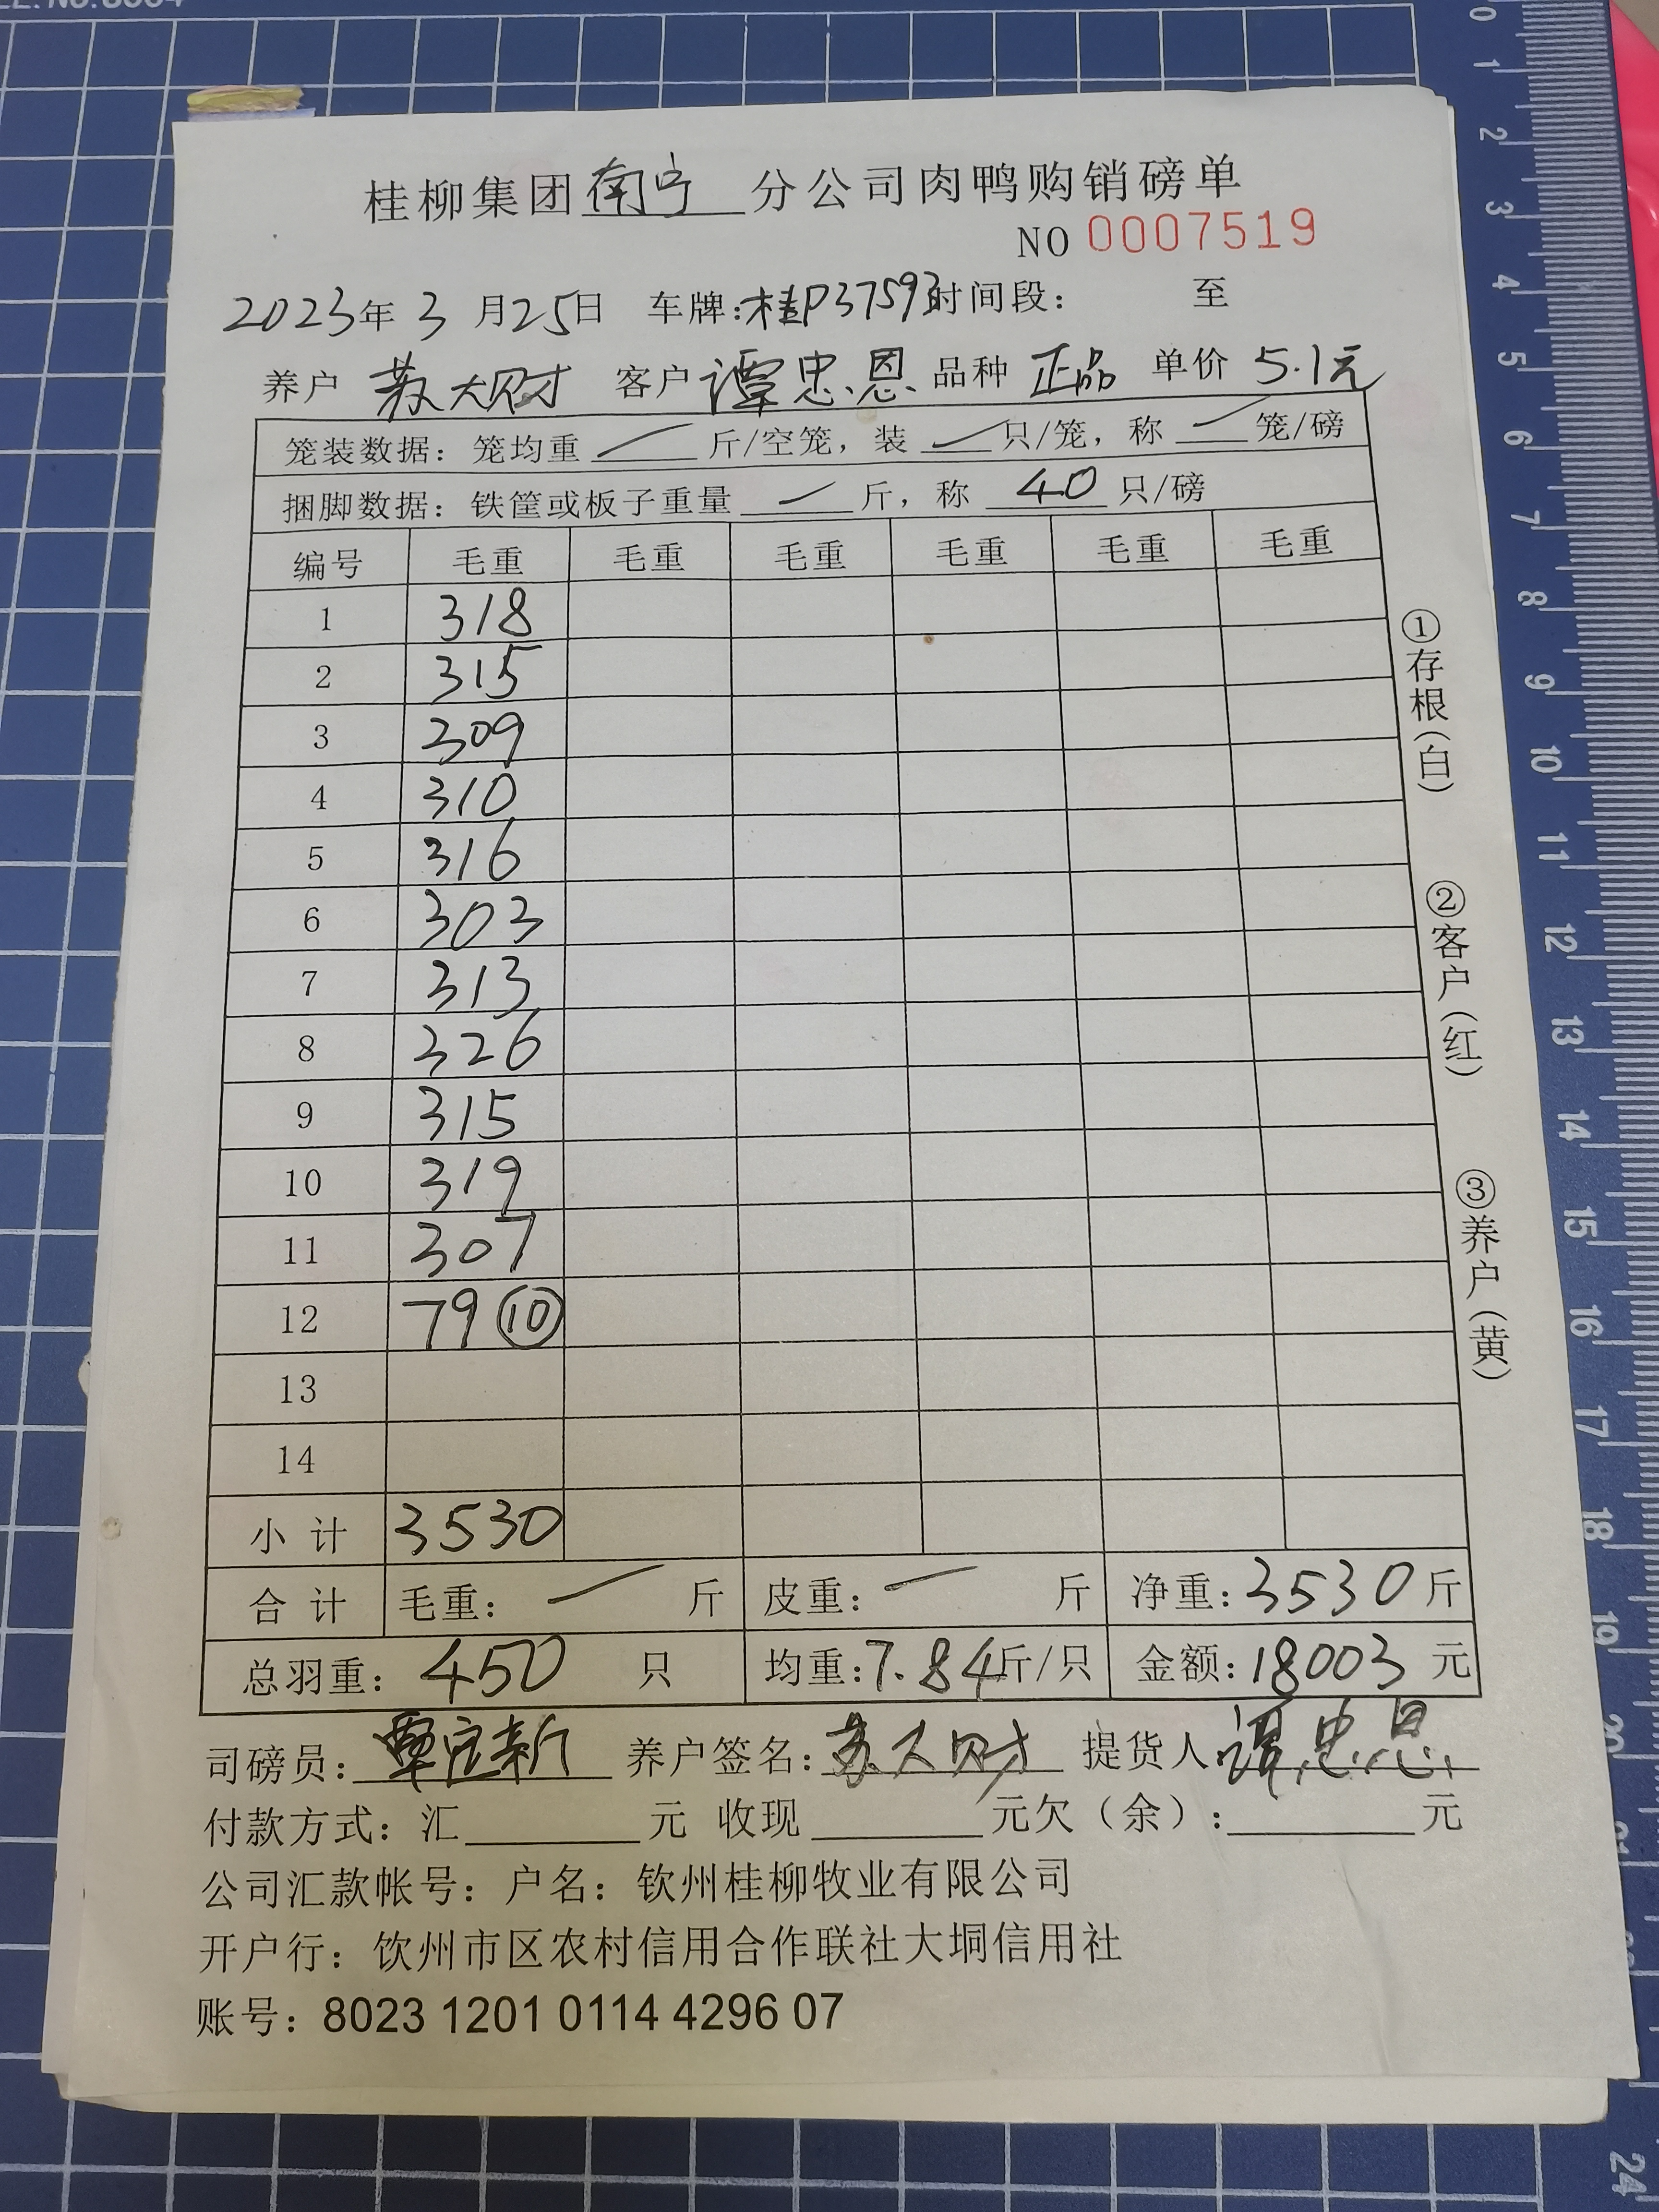 桂柳集团南宁分公司肉鸭购销磅单
NO 0007519
2023年3月25日 车牌:桂P37593时间段: 至
养户 苏大财 客户 谭忠恩 品种 正品 单价 5.1元
笼装数据: 笼均重 — 斤/空笼, 装 — 只/笼, 称 — 笼/磅
捆脚数据: 铁筐或板子重量 — 斤, 称 40 只/磅
编号 毛重 毛重 毛重 毛重 毛重 毛重
1 318
2 315
3 309
4 310
5 316
6 303
7 313
8 326
9 315
10 319
11 307
12 79 ⑩
13
14
小计 3530
合计 毛重: — 斤 皮重: — 斤 净重: 3530 斤
总羽重: 450 只 均重: 7.84斤/只 金额: 18003 元
司磅员: 覃宝新 养户签名: 苏大财 提货人: 谭忠恩
付款方式: 汇 元 收现 元欠(余): 元
公司汇款帐号: 户名: 钦州桂柳牧业有限公司
开户行: 钦州市区农村信用合作联社大垌信用社
账号: 8023 1201 0114 4296 07
①存根(白)
②客户(红)
③养户(黄)
0 1 2 3 4 5 6 7 8 9 10 11 12 13 14 15 16 17 18 19 20
24